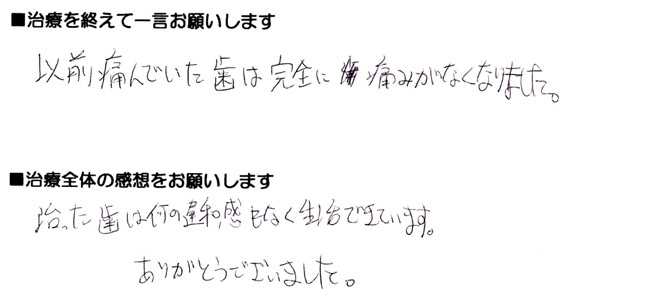 ■治療を終えて一言お願いします
以前痛んでいた歯は完全に痛みがなくなりました。
■治療全体の感想をお願いします
治った歯は何の違和感もなく生活できています。
ありがとうございました。